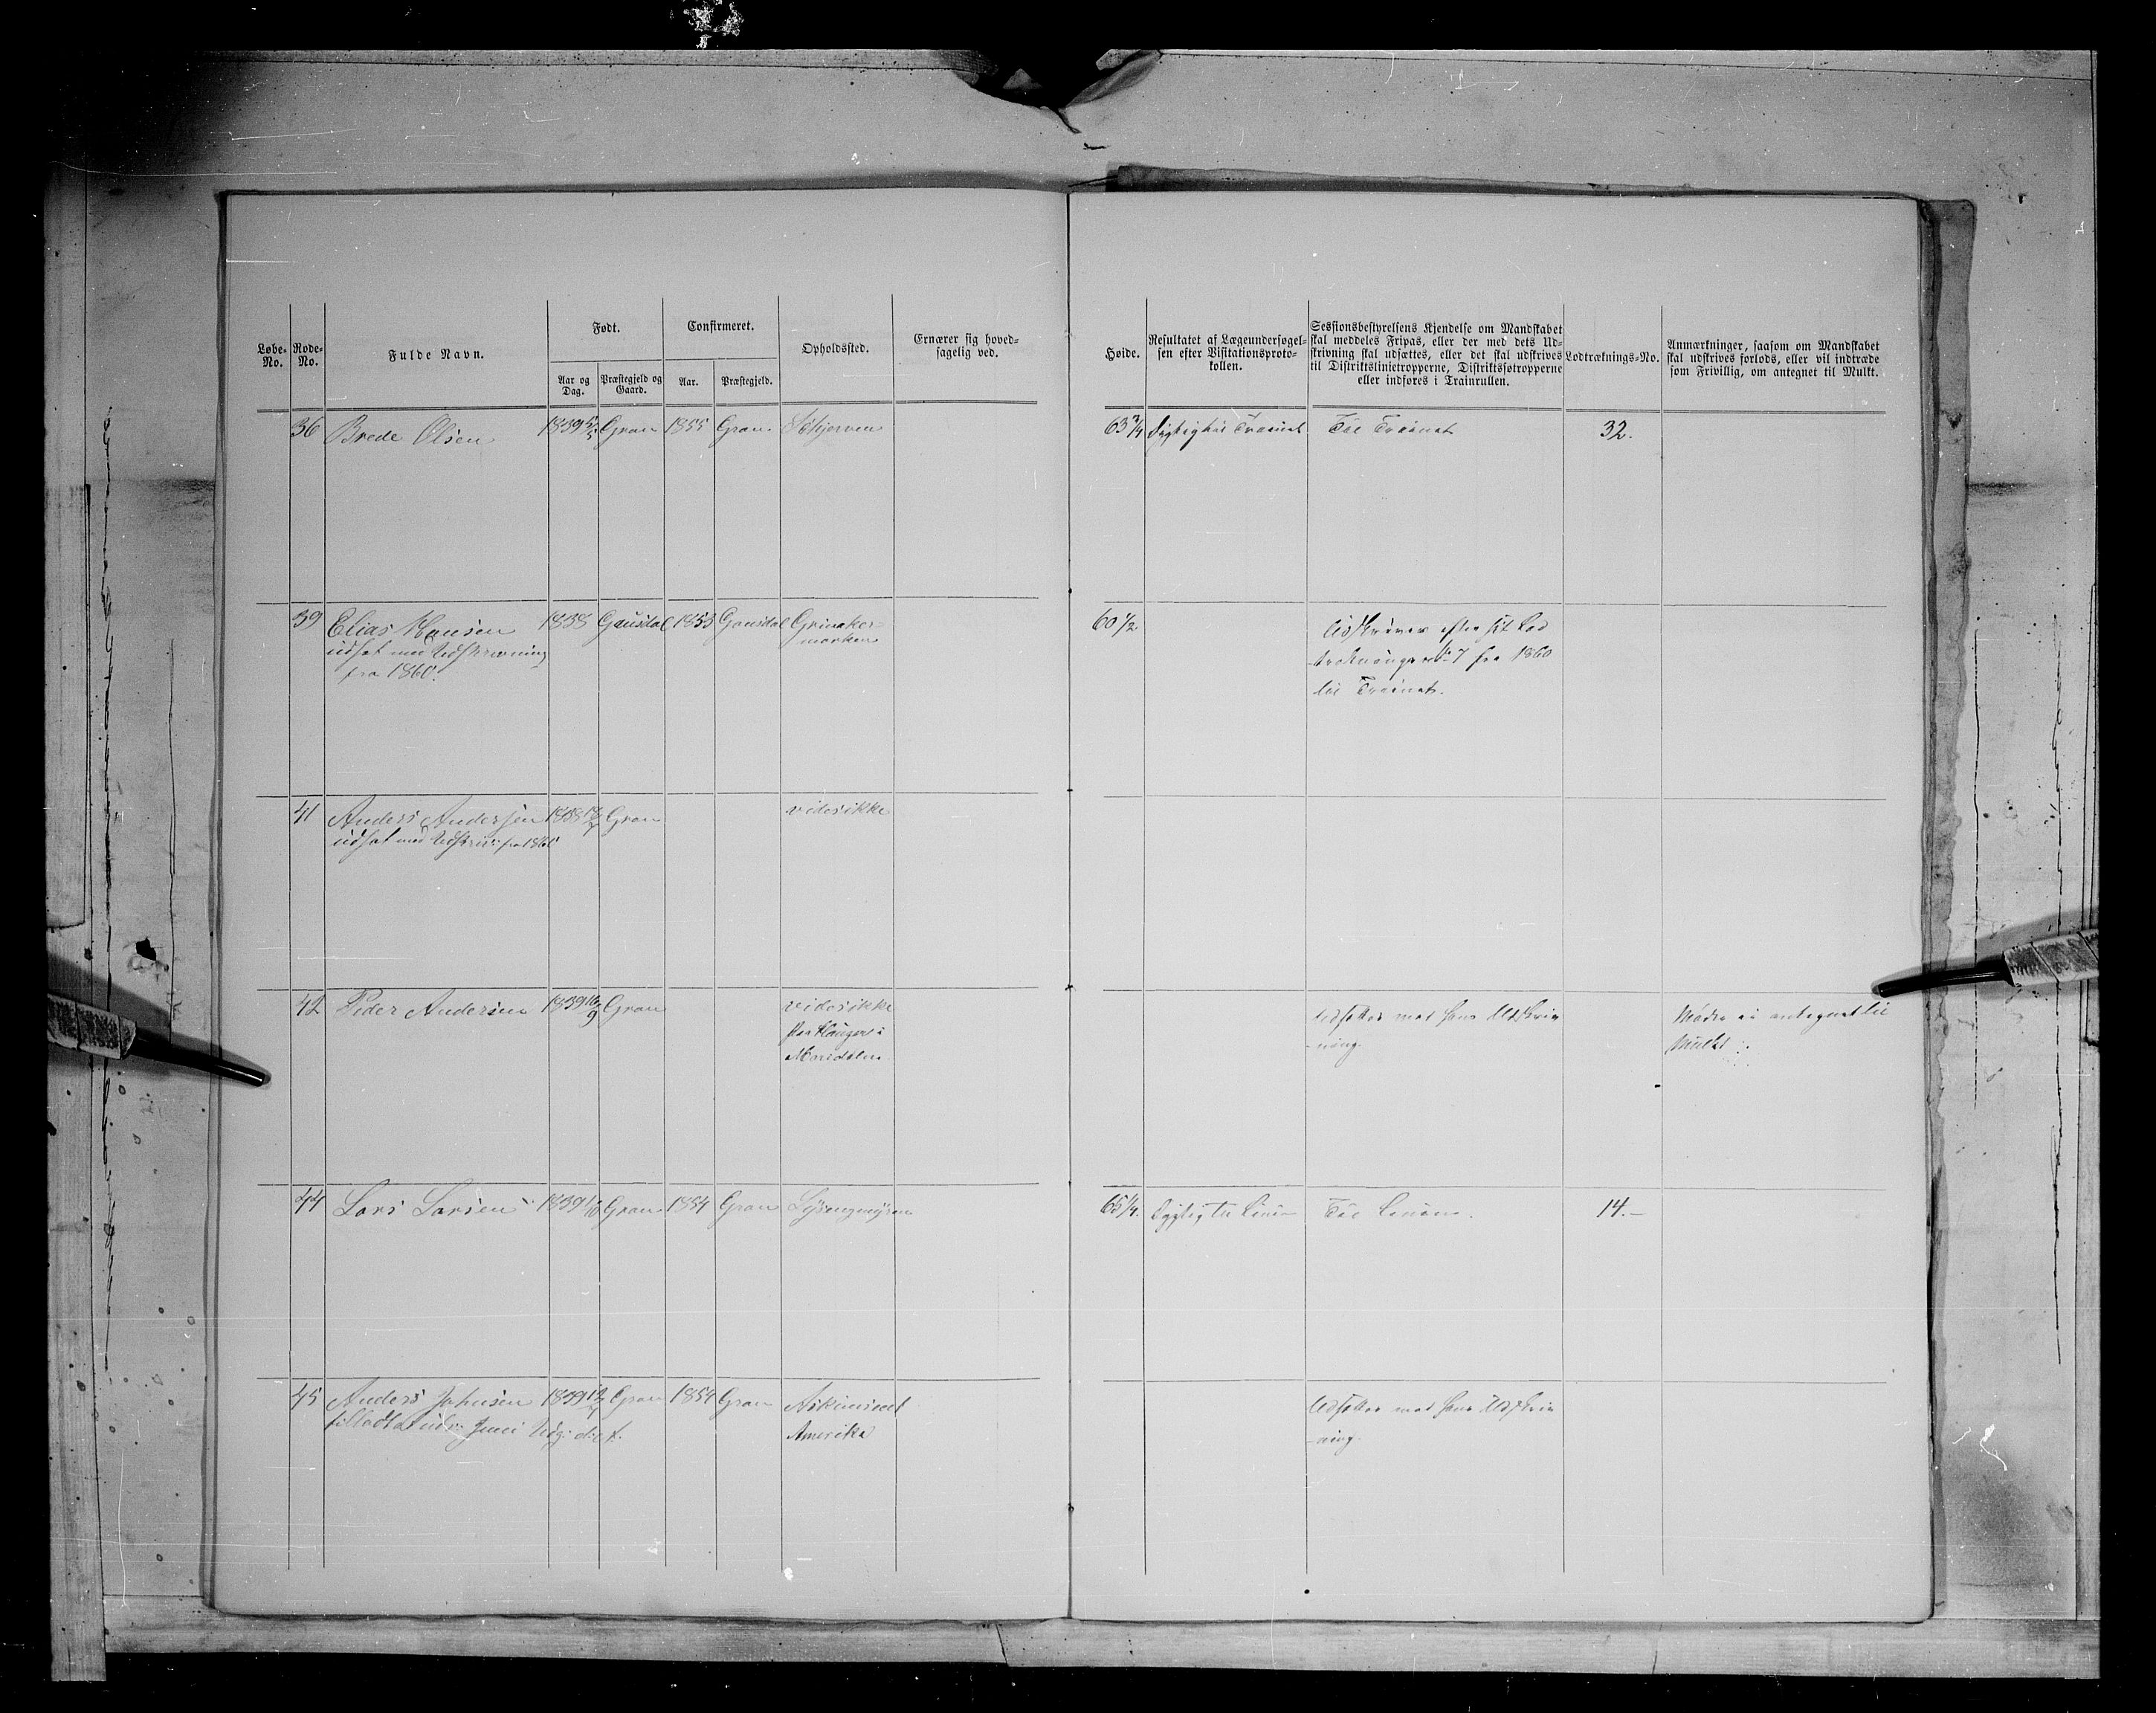 Løbe-No.
Rode-No.
Fulde Navn.
Født.
Aar og Dag.
Præstegjeld og Gaard.
Confirmeret.
Aar.
Præstegjeld.
Opholdssted.
Ernærer sig hoved-
sagelig ved.
Høide.
Resultatet af Lægeundersøgel-
sen efter Visitationsproto-
kollen.
Sessionsbestyrelsens Kjendelse om Mandskabet
skal meddeles Fripas, eller der med dets Ud-
skrivning skal udsættes, eller det skal udskrives
til Distriktslinietropperne, Distriktsfotropperne
eller indføres i Trainrullen.
Lodtræknings-No.
Anmærkninger, saasom om Mandskabet
skal udskrives forlods, eller vil indtræde
som Frivillig, om antegnet til Mulkt.
36 Brede Olsen 1839 Gran 1855 Gran. 63 3/4 Dygtig til Trainet Til Trainet 32.
39 Elias Hansen 1838 Gausdal 1853 Gausdal Grinaker- 60 1/2 Udskrives efter sit Lod
udsat med Udskrivning marken -træknings No 7 fra 1860
fra 1860. til Trainet.
41 Anders Andersen 1838 Gran vides ikke
udsat med Udskriv: fra 1860
42 Peder Andersen 1839 16/9 Gran vides ikke Udsættes med hans Udskriv Mødte ei antegnet til
i -ning. Mulkt
Maridalen
44 Lars Larsen 1839 Gran 1854 Gran 65 1/4. Dygtig til Linien Til Linien. 14.-
45 Anders Johnsen 1839 Gran 1854 Gran Udsættes med hans Udskriv
Amerika -ning.